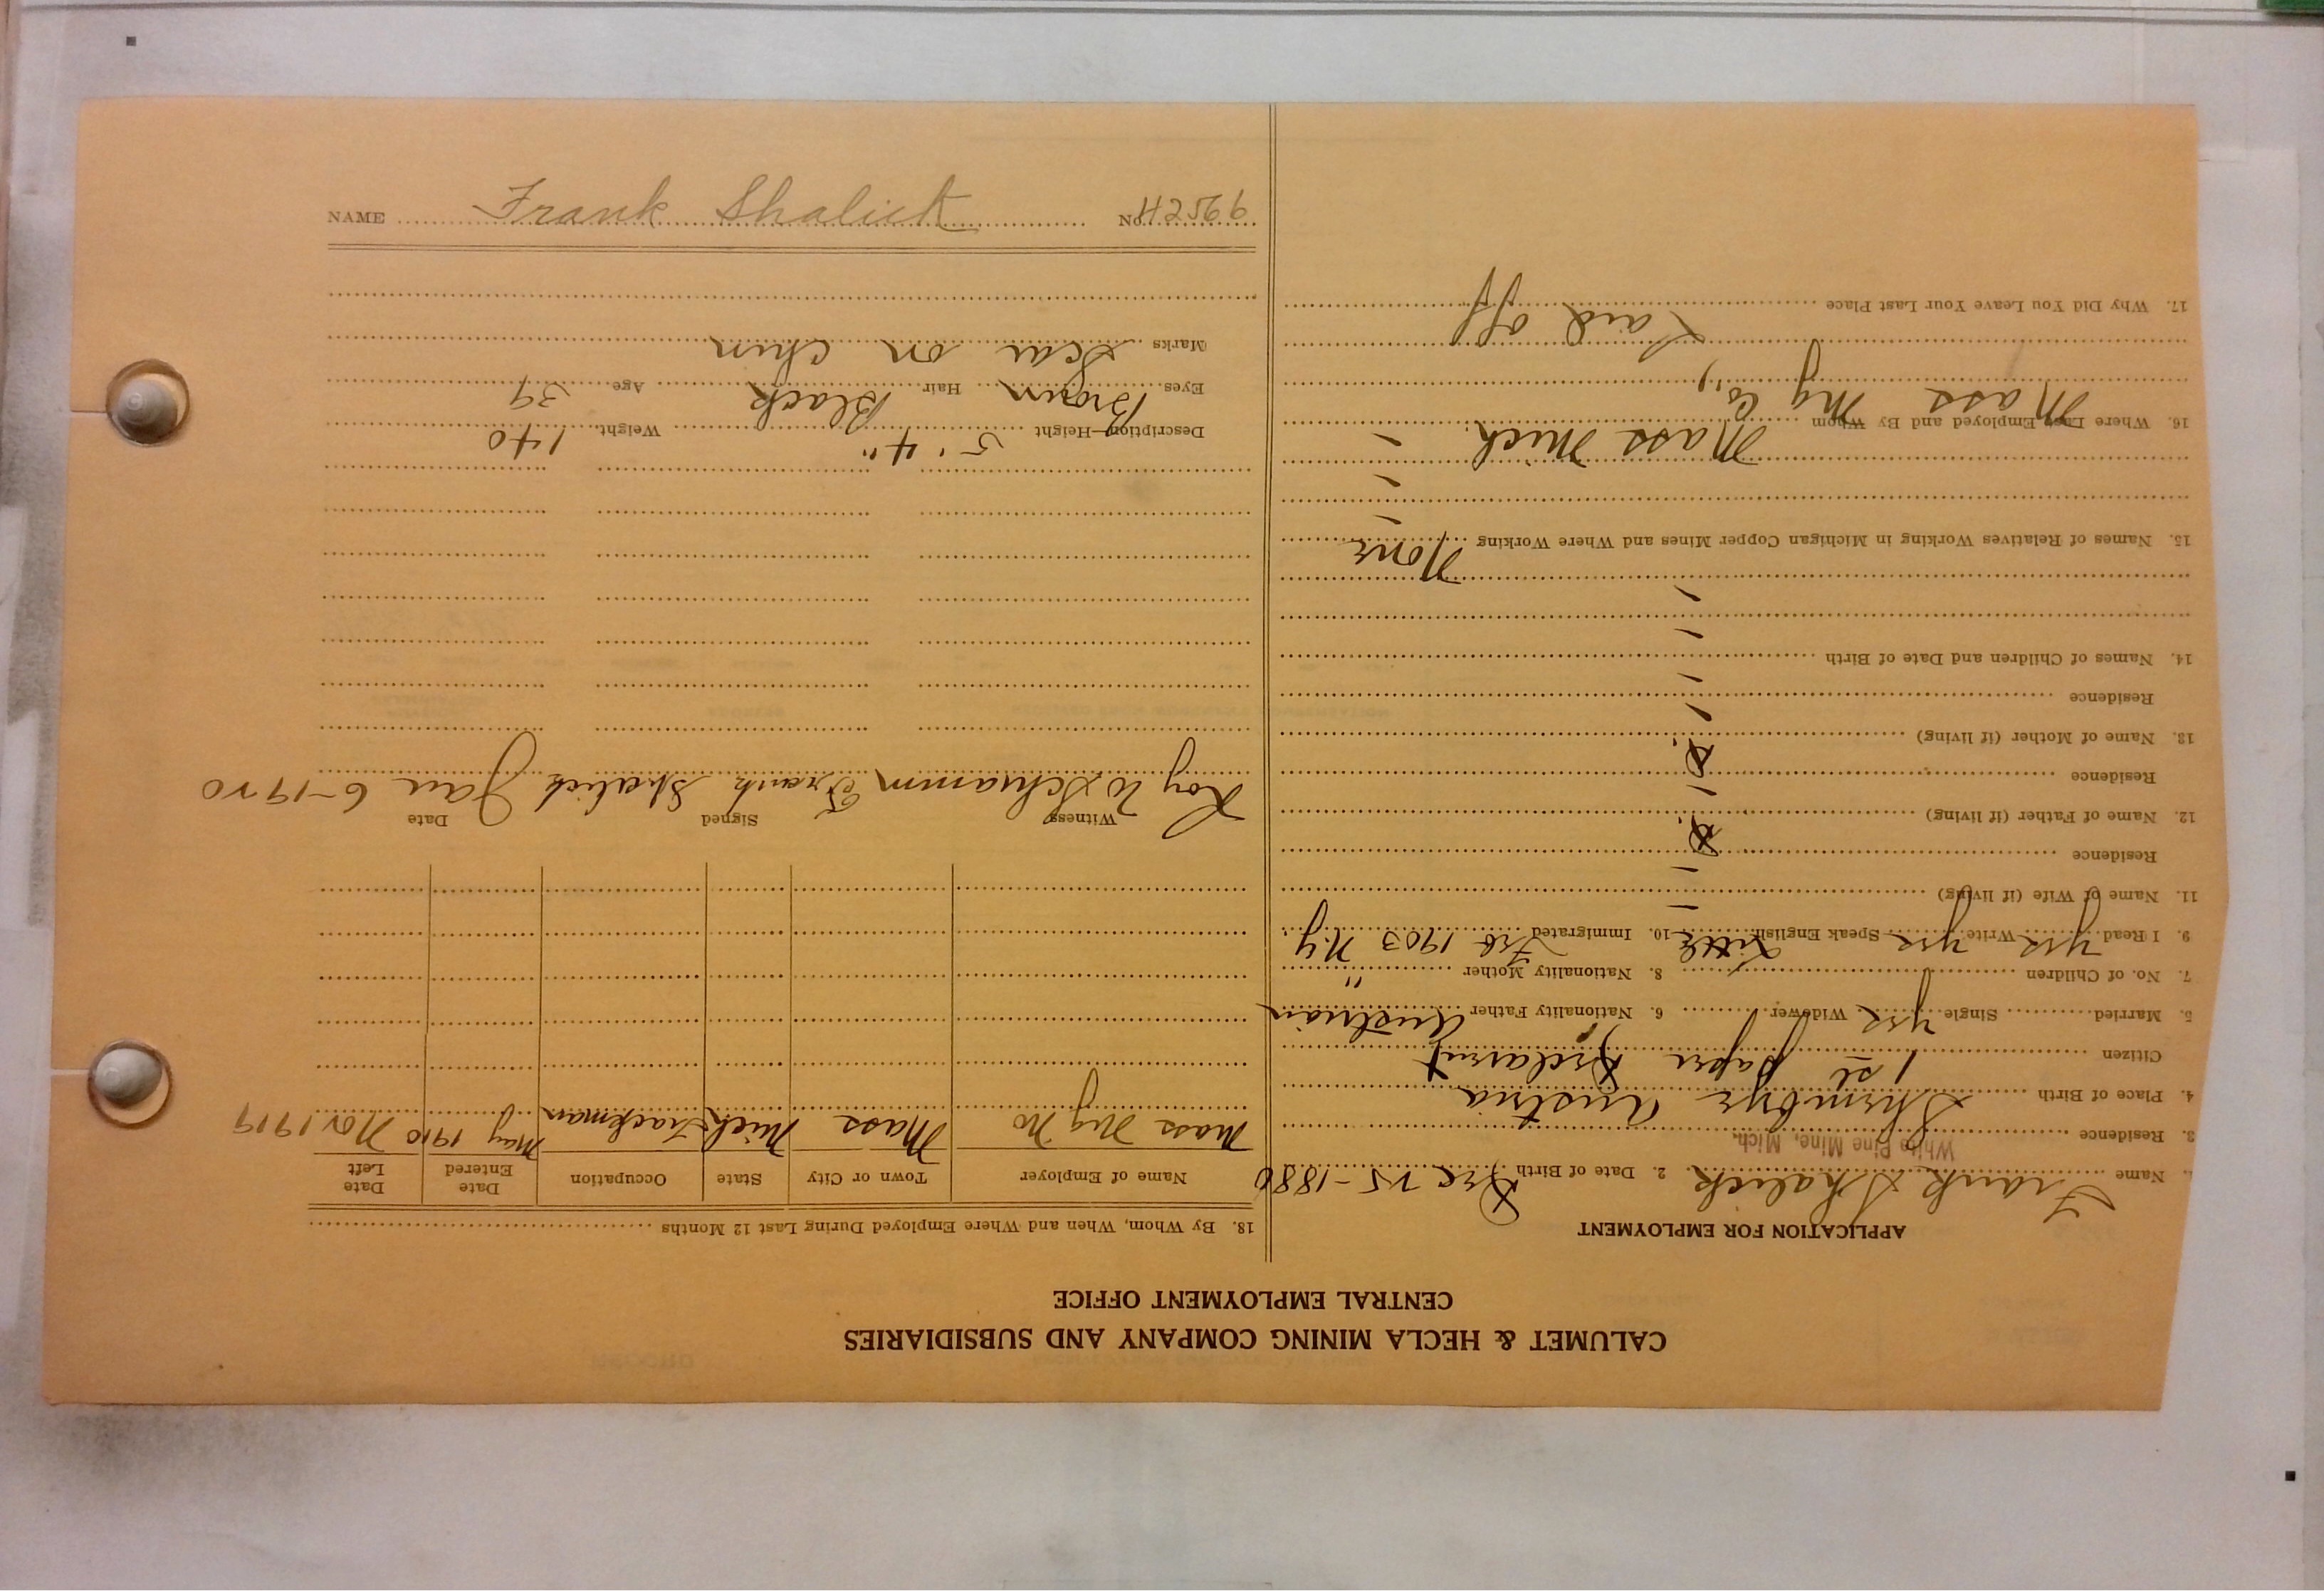 CALUMET & HECLA MINING COMPANY AND SUBSIDIARIES
CENTRAL EMPLOYMENT OFFICE
APPLICATION FOR EMPLOYMENT
1. Name Frank Shalick 2. Date of Birth Dec 25-1880
3. Residence White Pine Mine, Mich.
4. Place of Birth Austria
Citizen 1st paper Declarent
5. Married Single yes Widower 6. Nationality Father Austrian
7. No. of Children 8. Nationality Mother "
9. I Read yes Write yes Speak English Little 10. Immigrated Feb 1903 N.Y.
11. Name of Wife (if living) -
Residence -
12. Name of Father (if living) D.
Residence -
13. Name of Mother (if living) D.
Residence -
14. Names of Children and Date of Birth -
15. Names of Relatives Working in Michigan Copper Mines and Where Working None
16. Where Last Employed and By Whom Mass Mich.
Mass Mg Co.,
17. Why Did You Leave Your Last Place Laid off
18. By Whom, When and Where Employed During Last 12 Months
Name of Employer Town or City State Occupation Date Entered Date Left
Mass Mg Mass Mich Trackman May 1910 Nov 1919
Witness Signed Date
Roy W Schramm Frank Shalick Jan 6-1920
Description—Height 5' 4" Weight 140
Eyes Brown Hair Black Age 39
Marks Scar on Chin
NAME Frank Shalick No. 42566